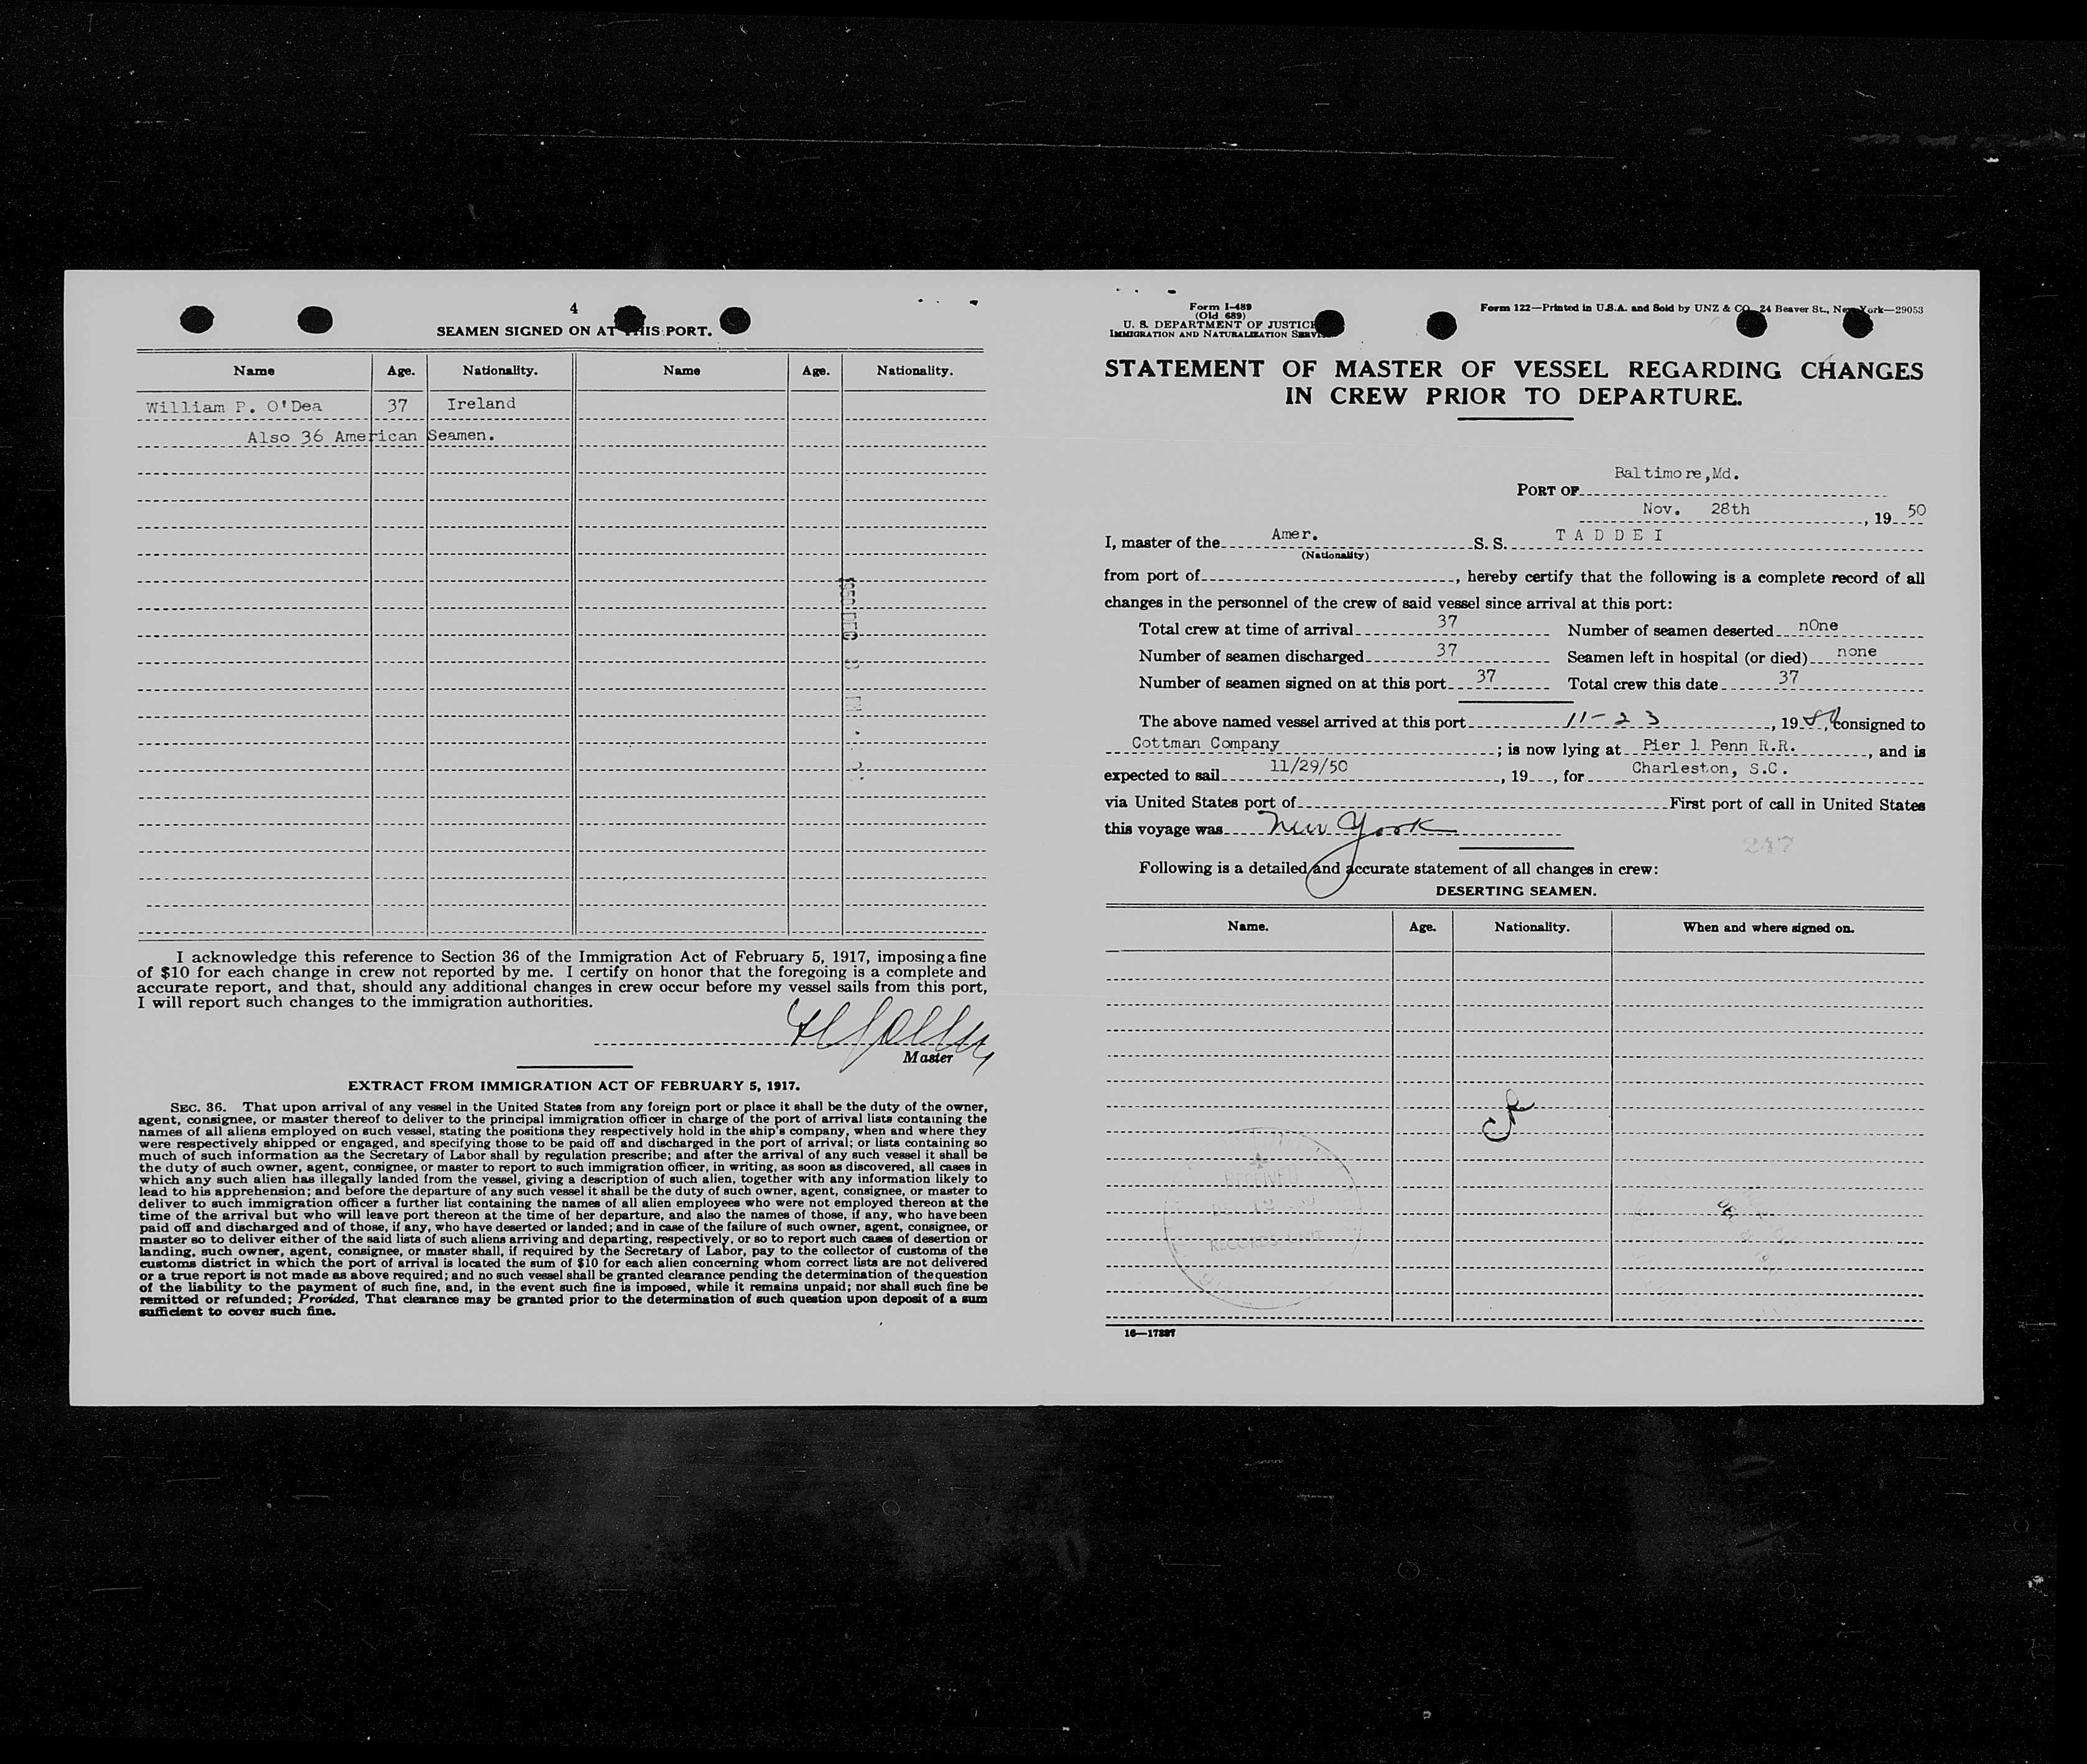 4
SEAMEN SIGNED ON AT THIS PORT.
Name Age. Nationality. Name Age. Nationality.
William P. O'Dea 37 Ireland
Also 36 American Seamen.
1950 DEC
I acknowledge this reference to Section 36 of the Immigration Act of February 5, 1917, imposing a fine
of $10 for each change in crew not reported by me. I certify on honor that the foregoing is a complete and
accurate report, and that, should any additional changes in crew occur before my vessel sails from this port,
I will report such changes to the immigration authorities.
Master
EXTRACT FROM IMMIGRATION ACT OF FEBRUARY 5, 1917.
SEC. 36. That upon arrival of any vessel in the United States from any foreign port or place it shall be the duty of the owner,
agent, consignee, or master thereof to deliver to the principal immigration officer in charge of the port of arrival lists containing the
names of all aliens employed on such vessel, stating the positions they respectively hold in the ship's company, when and where they
were respectively shipped or engaged, and specifying those to be paid off and discharged in the port of arrival; or lists containing so
much of such information as the Secretary of Labor shall by regulation prescribe; and after the arrival of any such vessel it shall be
the duty of such owner, agent, consignee, or master to report to such immigration officer, in writing, as soon as discovered, all cases in
which any such alien has illegally landed from the vessel, giving a description of such alien, together with any information likely to
lead to his apprehension; and before the departure of any such vessel it shall be the duty of such owner, agent, consignee, or master to
deliver to such immigration officer a further list containing the names of all alien employees who were not employed thereon at the
time of the arrival but who will leave port thereon at the time of her departure, and also the names of those, if any, who have been
paid off and discharged and of those, if any, who have deserted or landed; and in case of the failure of such owner, agent, consignee, or
master so to deliver either of the said lists of such aliens arriving and departing, respectively, or so to report such cases of desertion or
landing, such owner, agent, consignee, or master shall, if required by the Secretary of Labor, pay to the collector of customs of the
customs district in which the port of arrival is located the sum of $10 for each alien concerning whom correct lists are not delivered
or a true report is not made as above required; and no such vessel shall be granted clearance pending the determination of the question
of the liability to the payment of such fine, and, in the event such fine is imposed, while it remains unpaid; nor shall such fine be
remitted or refunded; Provided, That clearance may be granted prior to the determination of such question upon deposit of a sum
sufficient to cover such fine.
Form I-489
(Old 689)
U. S. DEPARTMENT OF JUSTICE
IMMIGRATION AND NATURALIZATION SERVICE
Form 122—Printed in U.S.A. and Sold by UNZ & CO. 24 Beaver St., New York—29053
STATEMENT OF MASTER OF VESSEL REGARDING CHANGES
IN CREW PRIOR TO DEPARTURE.
PORT OF Baltimore,Md.
Nov. 28th, 19 50
I, master of the Amer. S. S. T A D D E I
(Nationality)
from port of , hereby certify that the following is a complete record of all
changes in the personnel of the crew of said vessel since arrival at this port:
Total crew at time of arrival 37 Number of seamen deserted nOne
Number of seamen discharged 37 Seamen left in hospital (or died) none
Number of seamen signed on at this port 37 Total crew this date 37
The above named vessel arrived at this port 11-23, 19 , consigned to
Cottman Company ; is now lying at Pier 1 Penn R.R. , and is
expected to sail 11/29/50 , 19 , for Charleston, S.C.
via United States port of First port of call in United States
this voyage was New York
247
Following is a detailed and accurate statement of all changes in crew:
DESERTING SEAMEN.
Name. Age. Nationality. When and where signed on.
RECEIVED
RECORDS UNIT
16—17397